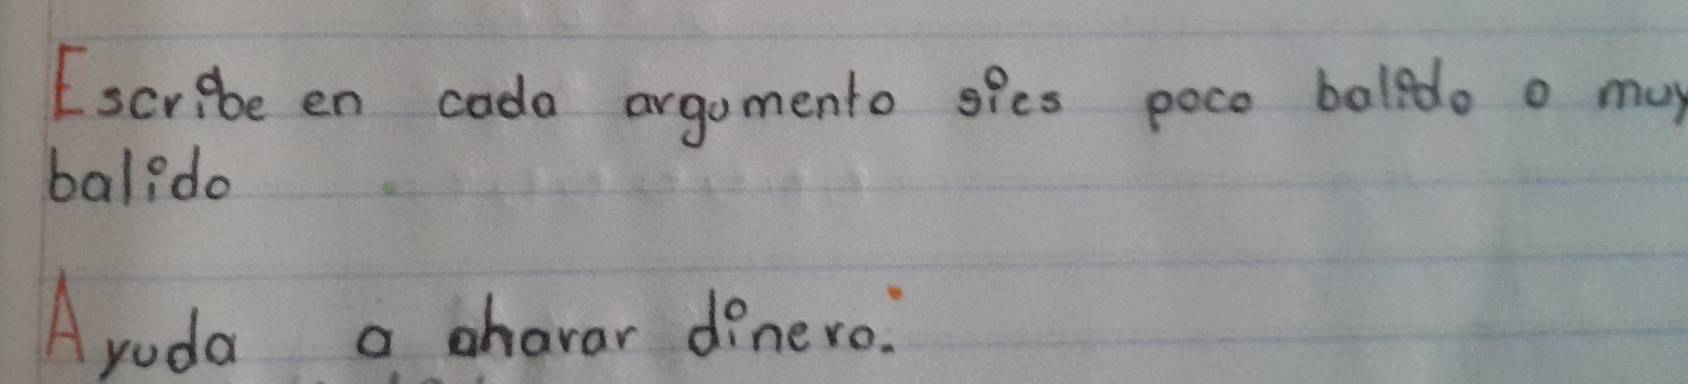 Escribe en cada argumento sies poco balido o muy
balido
Ayuda a aharar dinero.